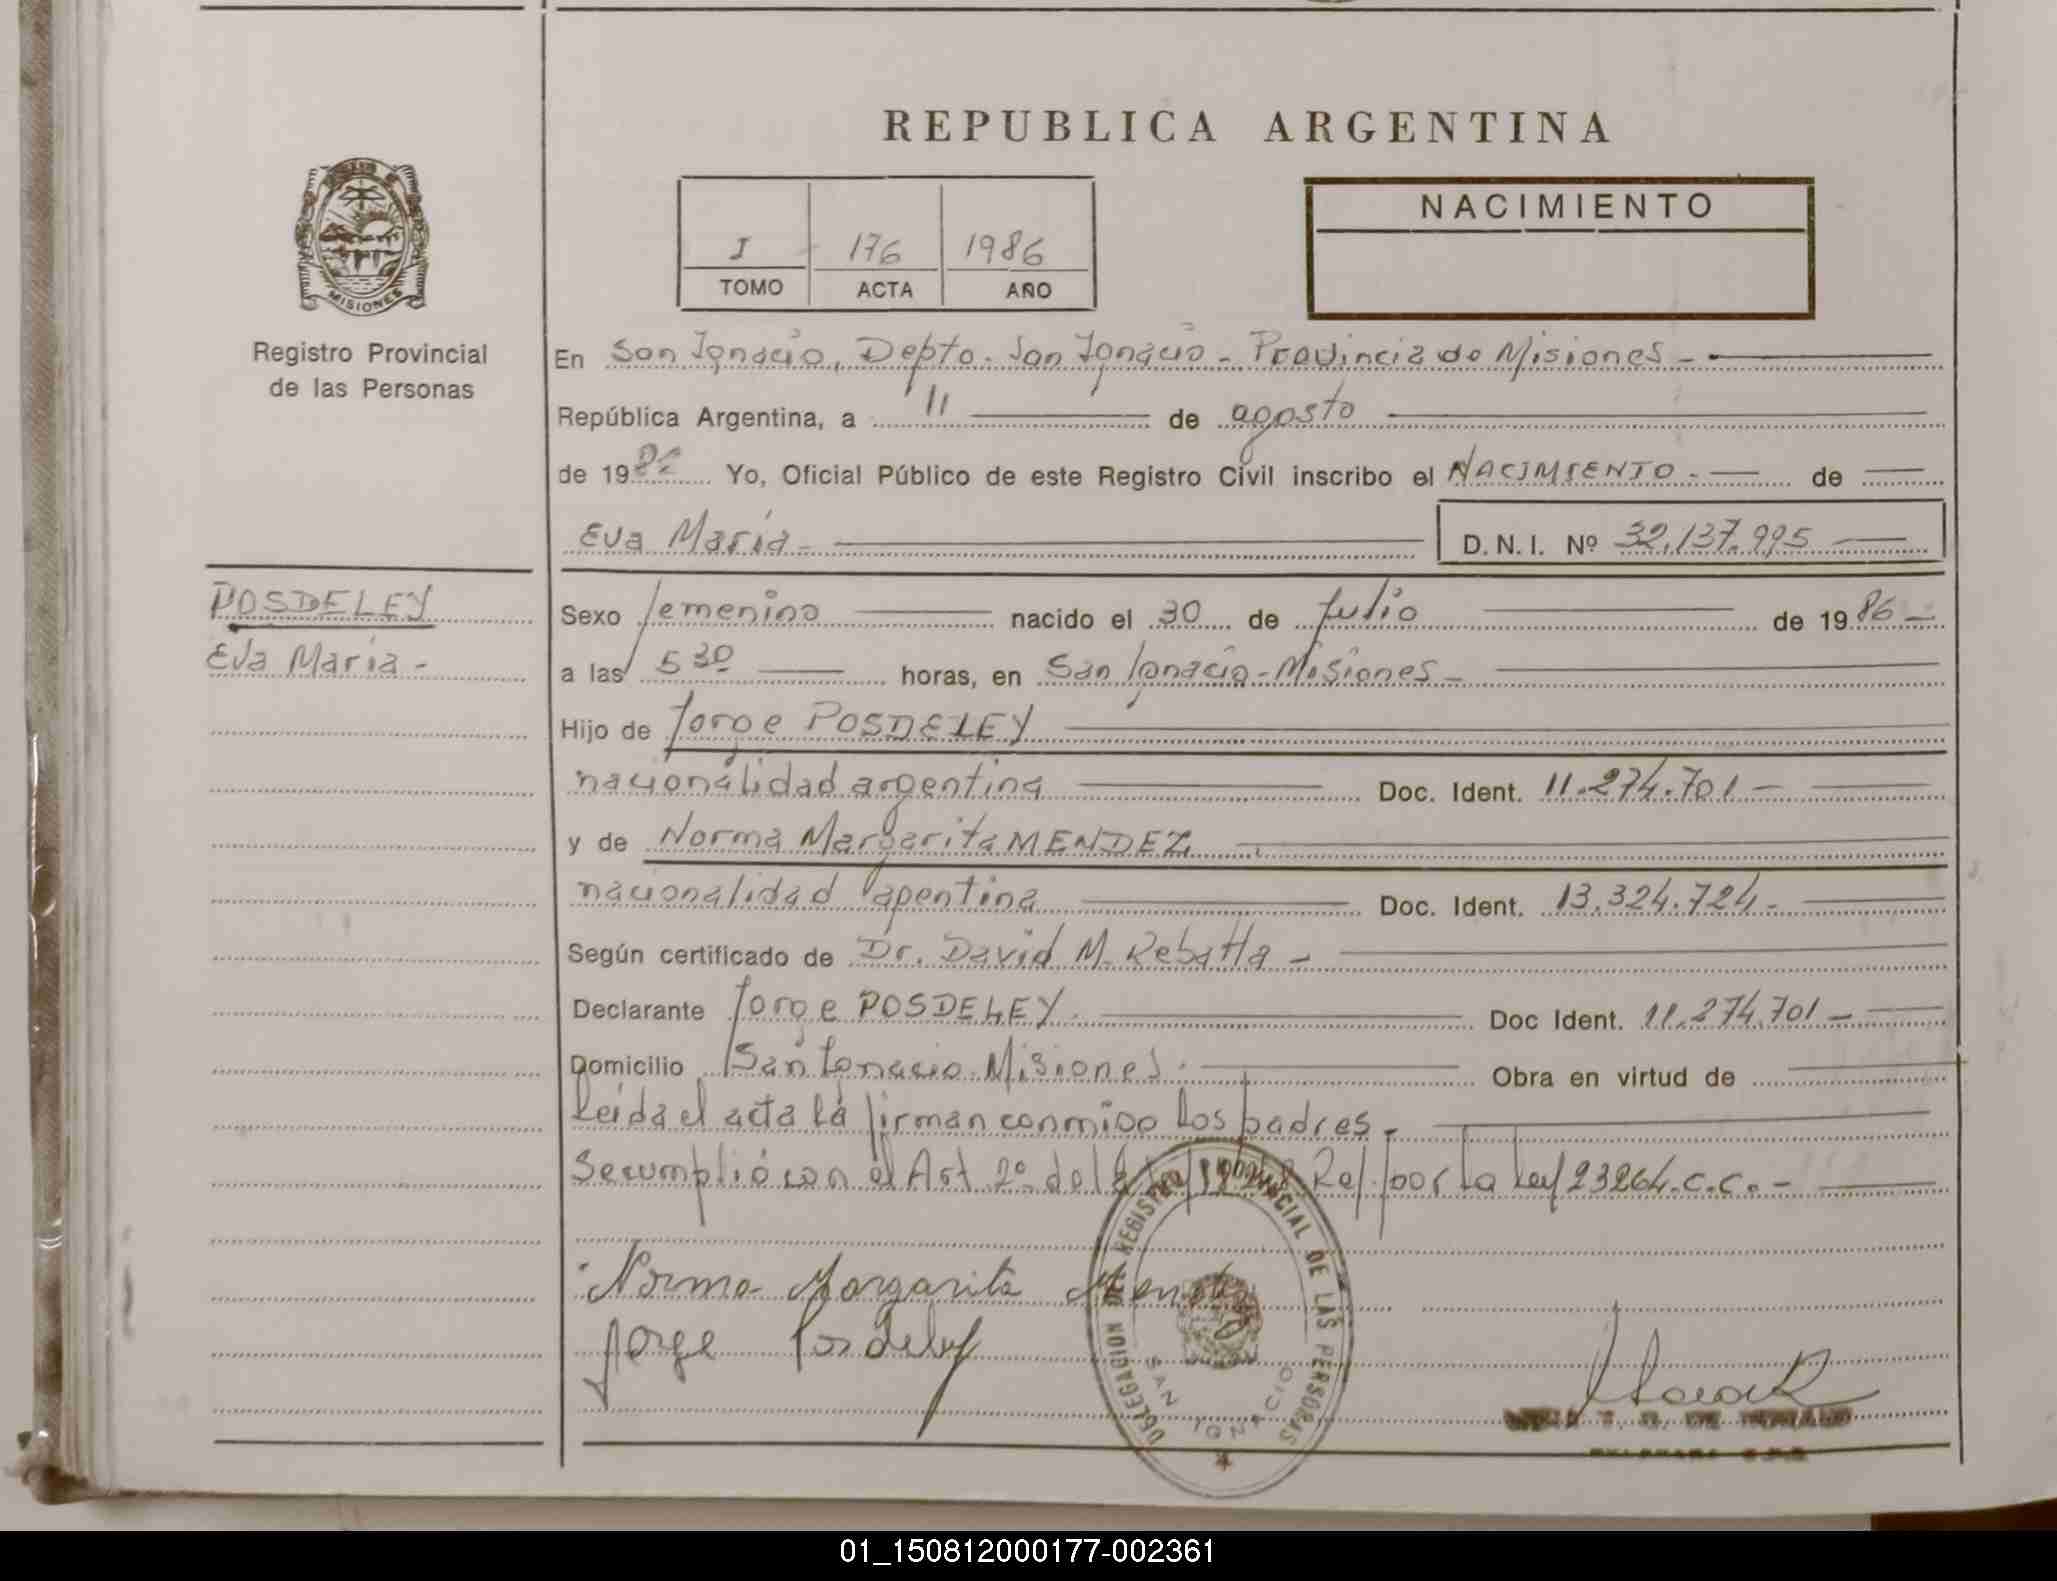 REPUBLICA ARGENTINA
MISIONES
Registro Provincial
de las Personas
I 176 1986
TOMO ACTA AÑO
NACIMIENTO
En San Ignacio, Depto. San Ignacio - Provincia de Misiones -
República Argentina, a 11 de agosto
de 1986 Yo, Oficial Público de este Registro Civil inscribo el NACIMIENTO. - de
Eva María - D. N. I. Nº 32.137.995
POSDELEY
Eva María -
Sexo femenino nacido el 30 de Julio de 1986 -
a las 5 30 horas, en San Ignacio - Misiones -
Hijo de Jorge POSDELEY
nacionalidad argentina Doc. Ident. 11.274.701 -
y de Norma Margarita MENDEZ
nacionalidad argentina Doc. Ident. 13.324.724 -
Según certificado de Dr. David M. Rebatta -
Declarante Jorge POSDELEY. Doc Ident. 11.274.701 -
Domicilio San Ignacio. Misiones. Obra en virtud de
Leida el acta la firman conmigo los padres -
Se cumplió con el Art 2º de la Ref. por la Ley 23264. C.C. -
Norma Margarita Mendez
Jorge Posdeley
DELEGACION DEL REGISTRO PROVINCIAL DE LAS PERSONAS
SAN IGNACIO
01_150812000177-002361